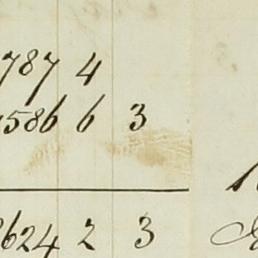 787 4
586 6 3
624 2 3